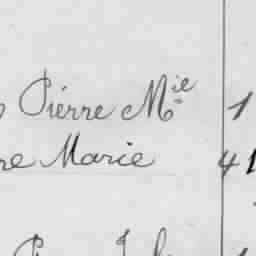 Pierre Mie 1
re Marie 41